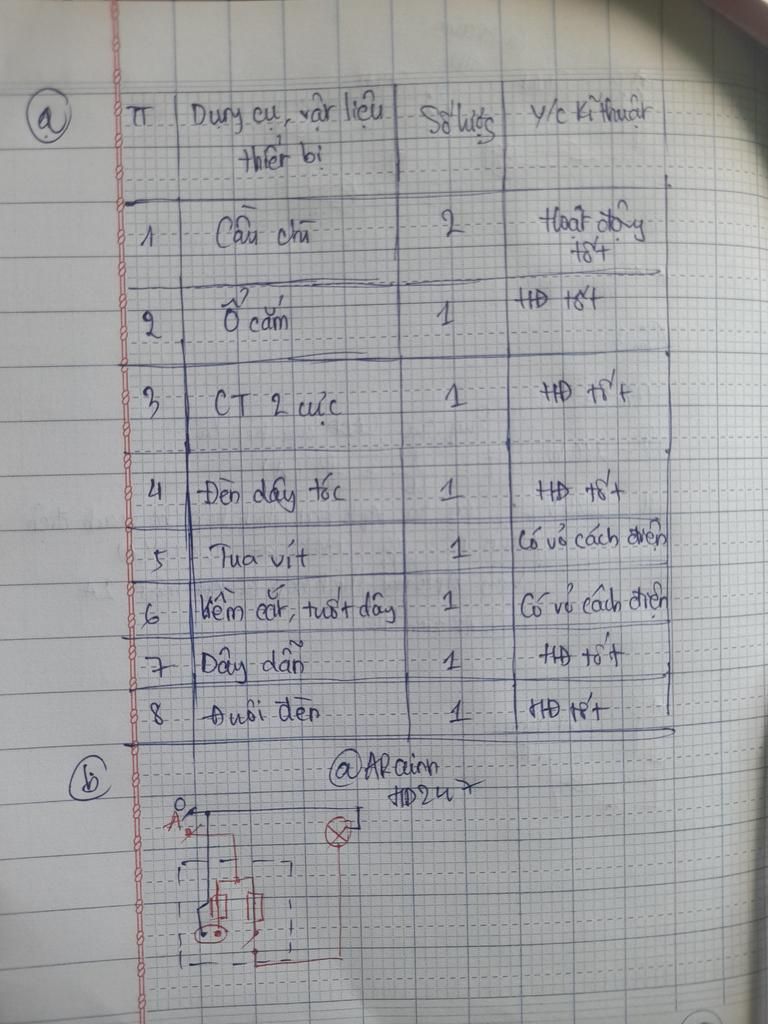 a
TT Dụng cụ, vật liệu thiết bị Số lượg Y/c Kĩ thuật
1 Cầu chì 2 Hoạt động tốt
2 Ổ cắm 1 HĐ tốt
3 CT 2 cực 1 HĐ tốt
4 Đèn dây tóc 1 HĐ tốt
5 Tua vít 1 Có vỏ cách điện
6 Kềm cắt, tuốt dây 1 Có vỏ cách điện
7 Dây dẫn 1 HĐ tốt
8 Đuôi đèn 1 HĐ tốt
b
@ARainn
HD247
O
A